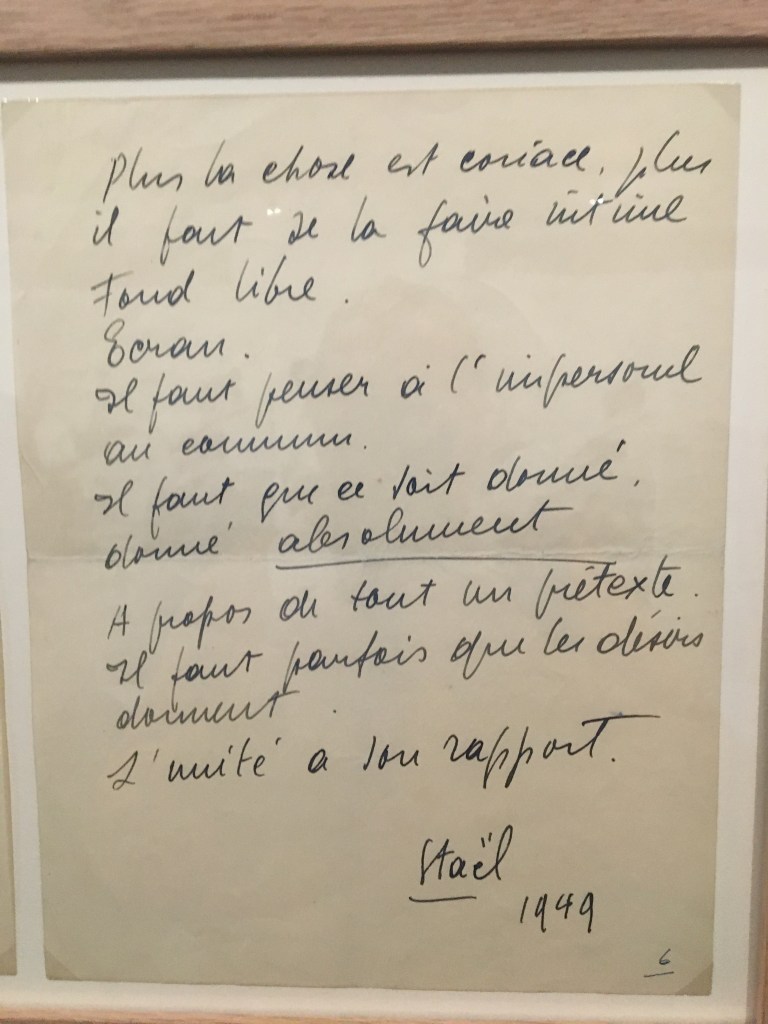 Plus la chose est coriace, plus
il faut se la faire intime
Fond libre.
Ecran.
Il faut penser à l'impersonnel
au commun.
Il faut que ce soit donné,
donné absolument
A propos de tout un prétexte.
Il faut parfois que les désirs
dorment.
L'unité a son rapport.
Staël
1949
6